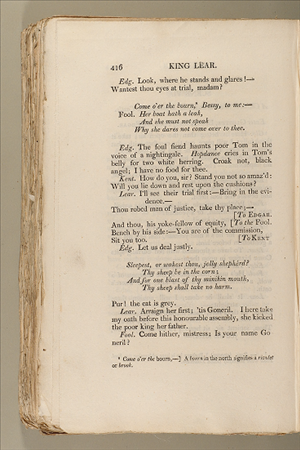 416 KING LEAR.
Edg. Look, where he stands and glares!—
Wantest thou eyes at trial, madam?
Come o'er the bourn,* Bessy, to me:—
Fool. Her boat hath a leak,
And she must not speak
Why she dares not come over to thee.
Edg. The foul fiend haunts poor Tom in the
voice of a nightingale. Hopdance cries in Tom's
belly for two white herring. Croak not, black
angel; I have no food for thee.
Kent. How do you, sir? Stand you not so amaz'd:
Will you lie down and rest upon the cushions?
Lear. I'll see their trial first:—Bring in the evi-
dence.—
Thou robed man of justice, take thy place;—
[To EDGAR.
And thou, his yoke-fellow of equity, [To the Fool.
Bench by his side:—You are of the commission,
Sit you too. [To KENT
Edg. Let us deal justly.
Sleepest, or wakest thou, jolly shepherd?
Thy sheep be in the corn;
And for one blast of thy minikin mouth,
Thy sheep shall take no harm.
Pur! the cat is grey.
Lear. Arraign her first; 'tis Goneril. I here take
my oath before this honourable assembly, she kicked
the poor king her father.
Fool. Come hither, mistress; Is your name Go
neril?
* Come o'er the bourn,—] A bourn in the north signifies a rivulet
or brook.